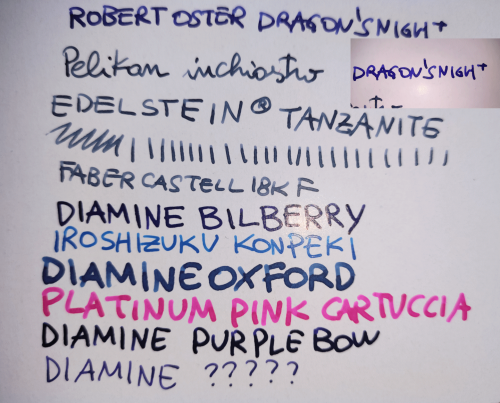 ROBERT OSTER DRAGON'S NIGHT
Pelikan inchiostro
DRAGON'S NIGHT
EDELSTEIN® TANZANITE
FABER CASTELL 18K F
DIAMINE BILBERRY
IROSHIZUKU KONPEKI
DIAMINE OXFORD
PLATINUM PINK CARTUCCIA
DIAMINE PURPLE BOW
DIAMINE ?????